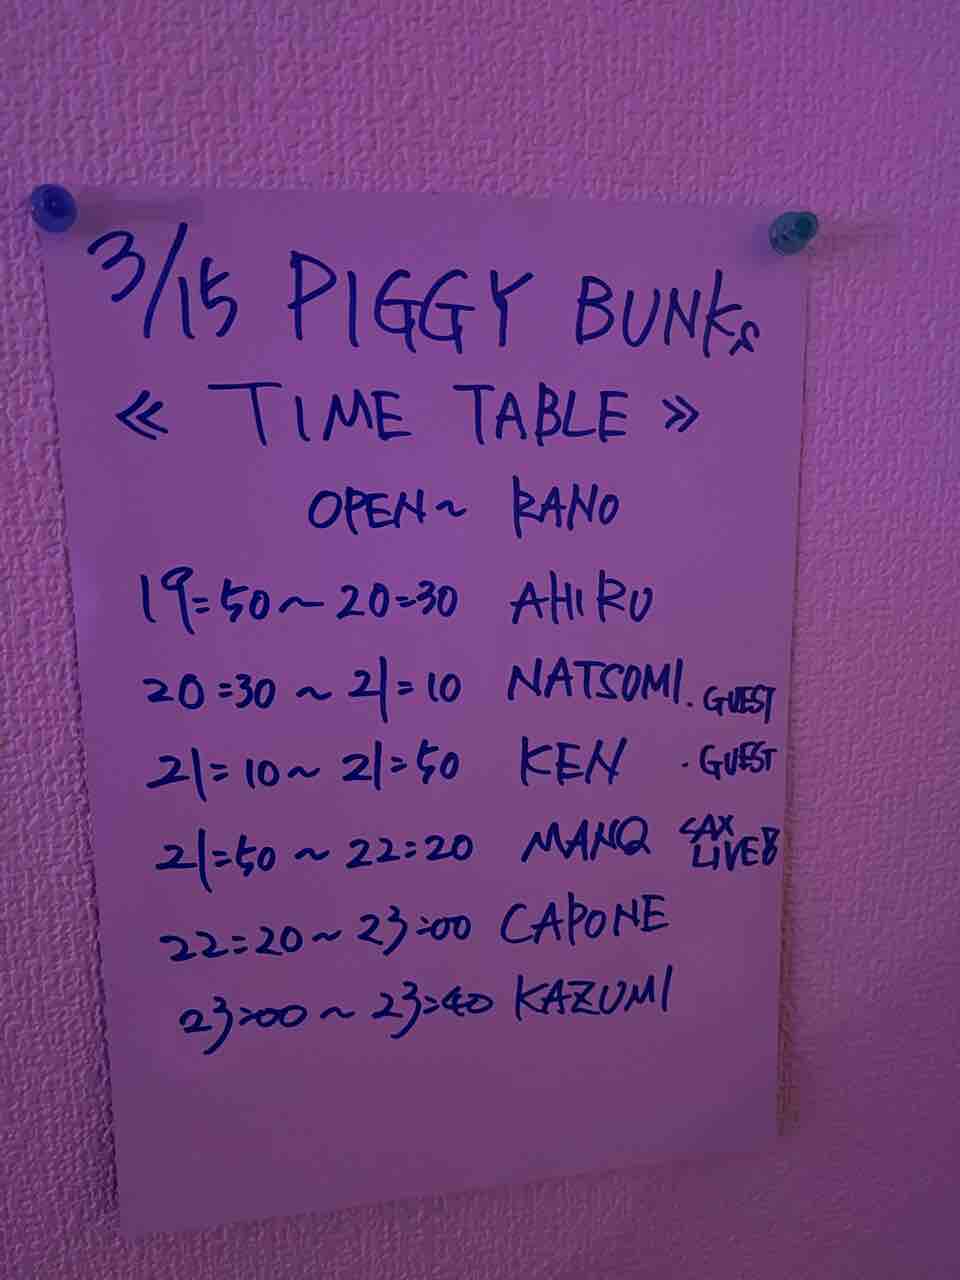 3/15 PIGGY BUNKs
≪ TIME TABLE ≫
OPEN~ KANO
19:50~20:30 AHIRU
20:30~21:10 NATSOMI. GUEST
21:10~21:50 KEN . GUEST
21:50~22:20 MANQ SAX LIVE
22:20~23:00 CAPONE
23:00~23:40 KAZUMI